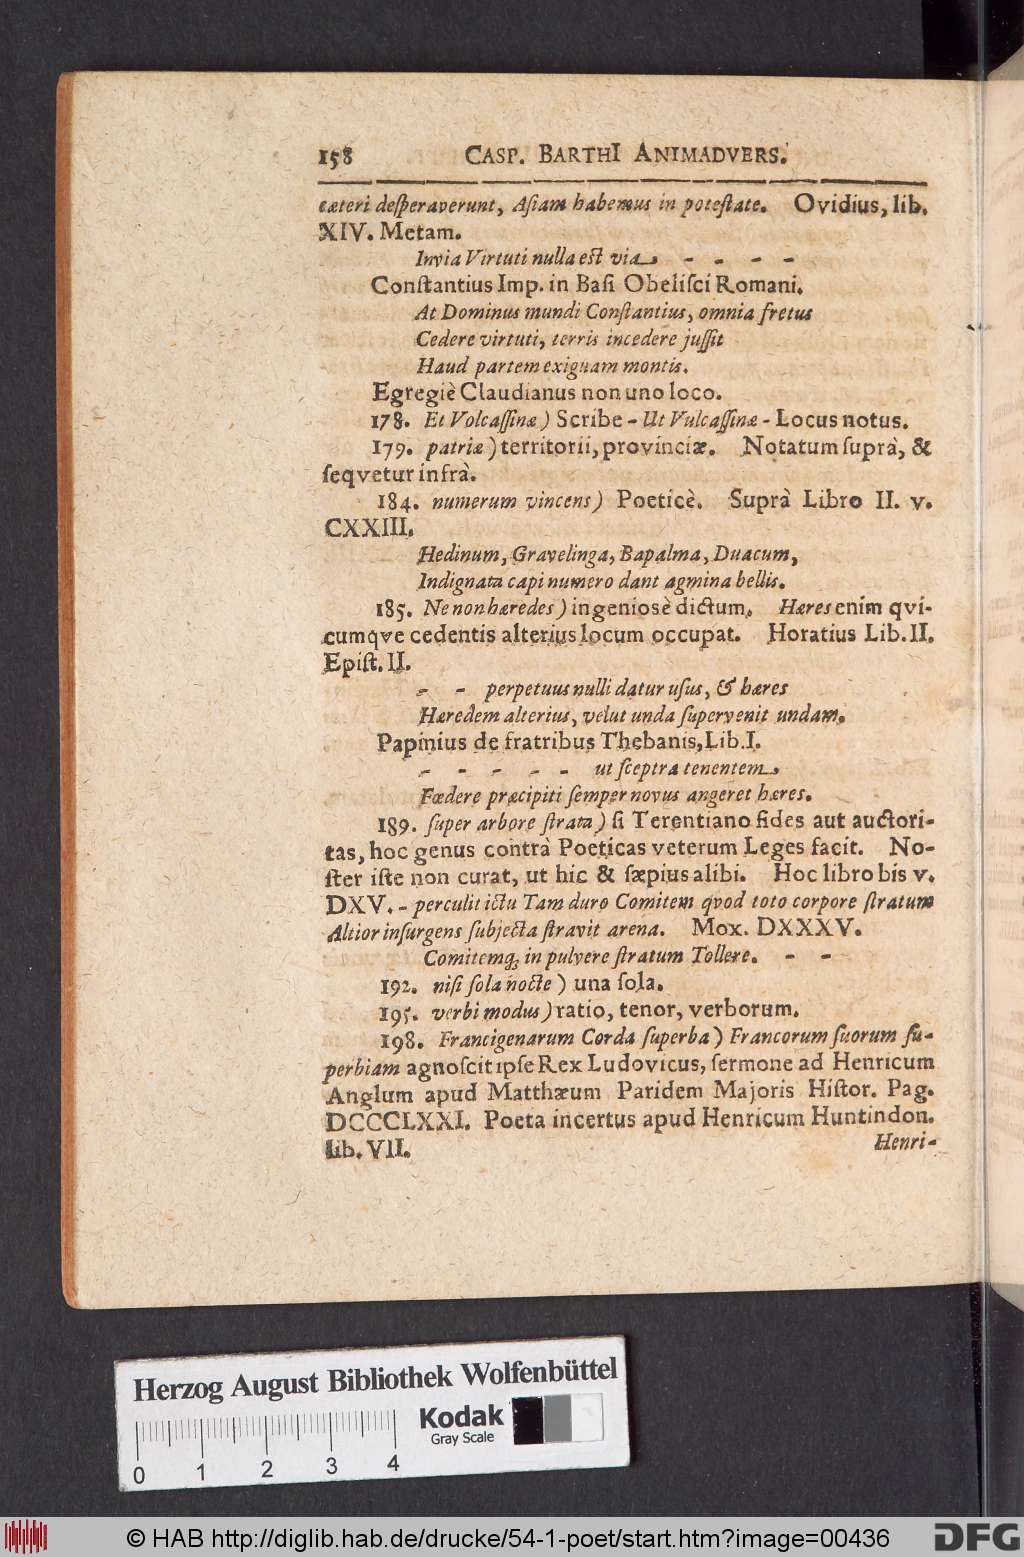 158 CASP. BARTHI ANIMADVERS.
cæteri deſperaverunt, Aſiam habemus in poteſtate. Ovidius, lib.
XIV. Metam.
Invia Virtuti nulla eſt via, - - - -
Conſtantius Imp. in Baſi Obeliſci Romani.
At Dominus mundi Conſtantius, omnia fretus
Cedere virtuti, terris incedere juſſit
Haud partem exiguam montis.
Egregiè Claudianus non uno loco.
178. Et Volcaſſinæ) Scribe - Ut Vulcaſſinæ - Locus notus.
179. patriæ) territorii, provinciæ. Notatum ſuprà, &
ſeqvetur infrà.
184. numerum vincens) Poeticè. Suprà Libro II. v.
CXXIII.
Hedinum, Gravelinga, Bapalma, Duacum,
Indignata capi numero dant agmina bellis.
185. Ne non hæredes) ingeniosè dictum. Hæres enim qvi-
cumqve cedentis alterius locum occupat. Horatius Lib. II.
Epiſt. II.
- - perpetuus nulli datur uſus, & hæres
Hæredem alterius, velut unda ſupervenit undam.
Papinius de fratribus Thebanis, Lib. I.
- - - - - ut ſceptra tenentem,
Fœdere præcipiti ſemper novus angeret hæres.
189. ſuper arbore ſtrata) ſi Terentiano fides aut auctori-
tas, hoc genus contrà Poeticas veterum Leges facit. No-
ſter iſte non curat, ut hic & ſæpius alibi. Hoc libro bis v.
DXV. - perculit ictu Tam duro Comitem qvod toto corpore ſtratum
Altior inſurgens ſubjecta ſtravit arena. Mox. DXXXV.
Comitemq; in pulvere ſtratum Tollere. - -
192. niſi ſola nocte) una ſola.
195. verbi modus) ratio, tenor, verborum.
198. Francigenarum Corda ſuperba) Francorum ſuorum ſu-
perbiam agnoſcit ipſe Rex Ludovicus, ſermone ad Henricum
Anglum apud Matthæum Paridem Majoris Hiſtor. Pag.
DCCCLXXI. Poeta incertus apud Henricum Huntindon.
Lib. VII.
Henri-
Herzog August Bibliothek Wolfenbüttel
Kodak
Gray Scale
0 1 2 3 4
© HAB http://diglib.hab.de/drucke/54-1-poet/start.htm?image=00436
DFG